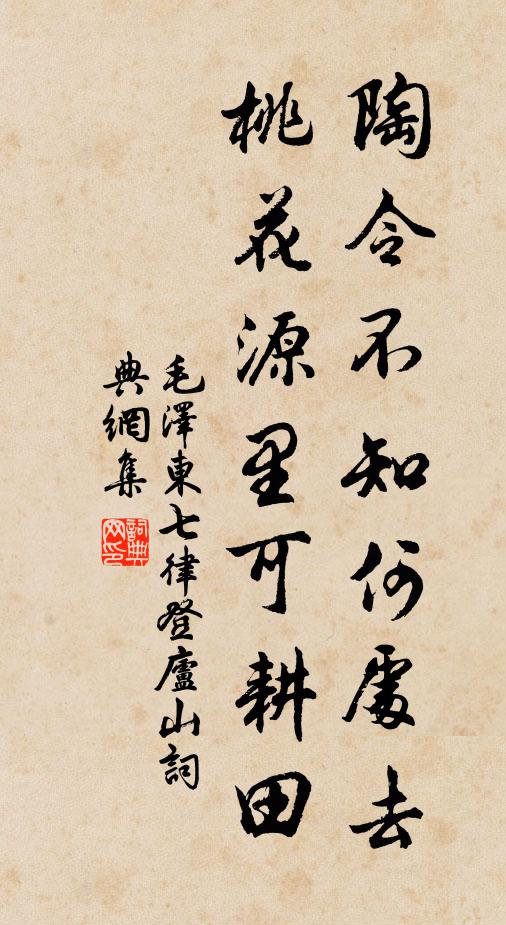 陶令不知何處去
桃花源里可耕田
毛澤東七律登廬山詞
典網集
詞典网印